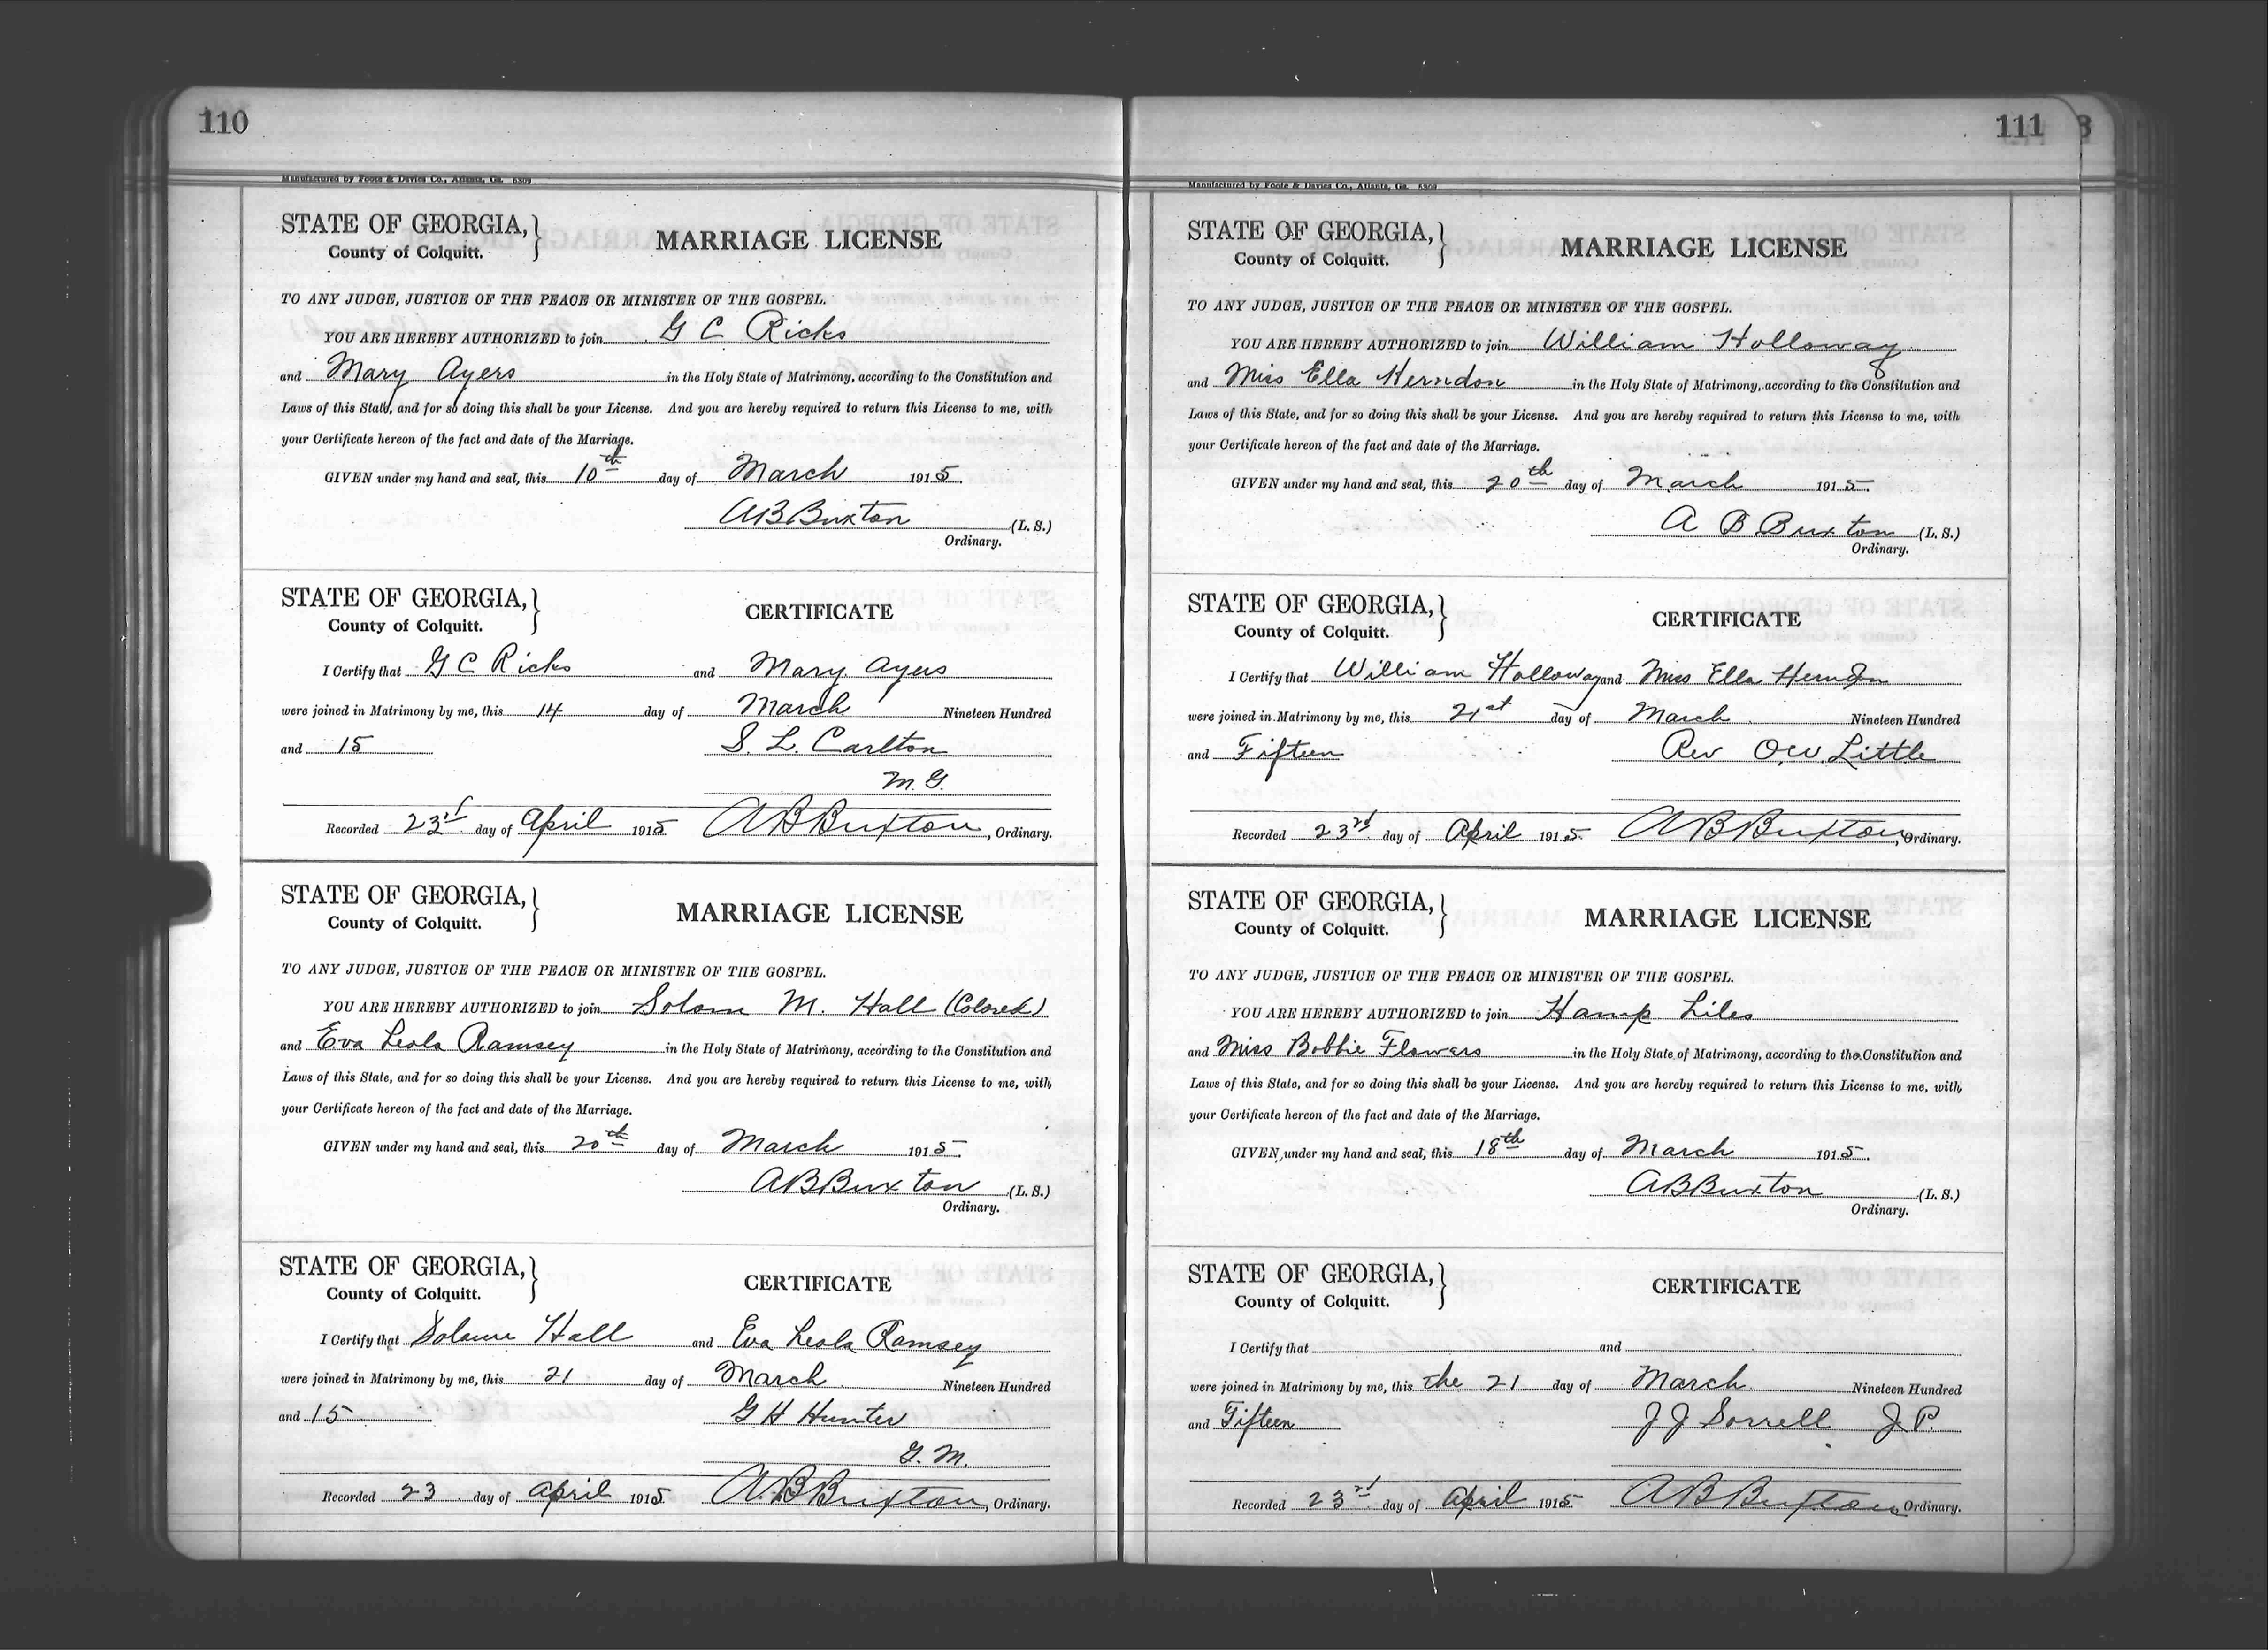 110
Manufactured by Foote & Davies Co., Atlanta, Ga.
STATE OF GEORGIA,
County of Colquitt.
MARRIAGE LICENSE
TO ANY JUDGE, JUSTICE OF THE PEACE OR MINISTER OF THE GOSPEL.
YOU ARE HEREBY AUTHORIZED to join G C Ricks
and Mary Ayers in the Holy State of Matrimony, according to the Constitution and
Laws of this State, and for so doing this shall be your License. And you are hereby required to return this License to me, with
your Certificate hereon of the fact and date of the Marriage.
GIVEN under my hand and seal, this 10th day of March 1915.
A B Buxton (L. S.)
Ordinary.
STATE OF GEORGIA,
County of Colquitt.
CERTIFICATE
I Certify that G C Ricks and Mary Ayers
were joined in Matrimony by me, this 14 day of March Nineteen Hundred
and 15 S. L. Carlton
M. G.
Recorded 23rd day of April 1915 A B Buxton, Ordinary.
STATE OF GEORGIA,
County of Colquitt.
MARRIAGE LICENSE
TO ANY JUDGE, JUSTICE OF THE PEACE OR MINISTER OF THE GOSPEL.
YOU ARE HEREBY AUTHORIZED to join M. Hall (Colored)
and Eva Leola Ramsey in the Holy State of Matrimony, according to the Constitution and
Laws of this State, and for so doing this shall be your License. And you are hereby required to return this License to me, with
your Certificate hereon of the fact and date of the Marriage.
GIVEN under my hand and seal, this 20th day of March 1915.
A B Buxton (L. S.)
Ordinary.
STATE OF GEORGIA,
County of Colquitt.
CERTIFICATE
I Certify that Hall and Eva Leola Ramsey
were joined in Matrimony by me, this 21 day of March Nineteen Hundred
and 15 G H Hunter
G. M.
Recorded 23 day of April 1915 A. B Buxton, Ordinary.
111
Manufactured by Foote & Davies Co., Atlanta, Ga.
STATE OF GEORGIA,
County of Colquitt.
MARRIAGE LICENSE
TO ANY JUDGE, JUSTICE OF THE PEACE OR MINISTER OF THE GOSPEL.
YOU ARE HEREBY AUTHORIZED to join William Holloway
and Miss Ella Herndon in the Holy State of Matrimony, according to the Constitution and
Laws of this State, and for so doing this shall be your License. And you are hereby required to return this License to me, with
your Certificate hereon of the fact and date of the Marriage.
GIVEN under my hand and seal, this 20th day of March 1915.
A B Buxton (L. S.)
Ordinary.
STATE OF GEORGIA,
County of Colquitt.
CERTIFICATE
I Certify that William Holloway and Miss Ella Herndon
were joined in Matrimony by me, this 21st day of March Nineteen Hundred
and Fifteen Rev O.W. Little
Recorded 23rd day of April 1915 A B Buxton, Ordinary.
STATE OF GEORGIA,
County of Colquitt.
MARRIAGE LICENSE
TO ANY JUDGE, JUSTICE OF THE PEACE OR MINISTER OF THE GOSPEL.
YOU ARE HEREBY AUTHORIZED to join Hamp Liles
and Miss Bobbie Flowers in the Holy State of Matrimony, according to the Constitution and
Laws of this State, and for so doing this shall be your License. And you are hereby required to return this License to me, with
your Certificate hereon of the fact and date of the Marriage.
GIVEN under my hand and seal, this 18th day of March 1915.
A B Buxton (L. S.)
Ordinary.
STATE OF GEORGIA,
County of Colquitt.
CERTIFICATE
I Certify that and
were joined in Matrimony by me, this the 21 day of March Nineteen Hundred
and Fifteen J J Sorrell J P.
Recorded 23rd day of April 1915 A B Buxton, Ordinary.